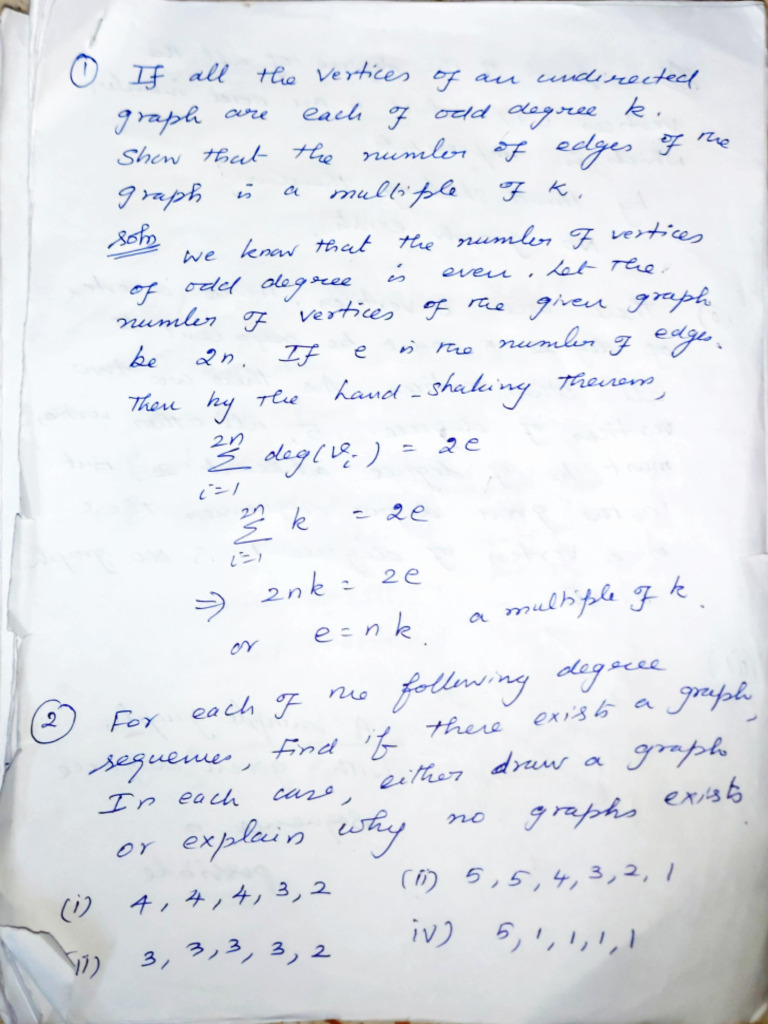 ① If all the vertices of an undirected
graph are each of odd degree k.
Show that the number of edges of the
graph is a multiple of k.
Soln we know that the number of vertices
of odd degree is even. Let the
number of vertices of the given graph
be 2n. If e is the number of edges.
Then by the hand-shaking theorem,
2n
Σ deg(vᵢ) = 2e
i=1
2n
Σ k = 2e
i=1
⇒ 2nk = 2e
or e = nk. a multiple of k.
② For each of the following degree
sequences, find if there exists a graph,
In each case, either draw a graph
or explain why no graphs exists
(i) 4, 4, 4, 3, 2 (ii) 5, 5, 4, 3, 2, 1
iii) 3, 3, 3, 3, 2 iv) 5, 1, 1, 1, 1